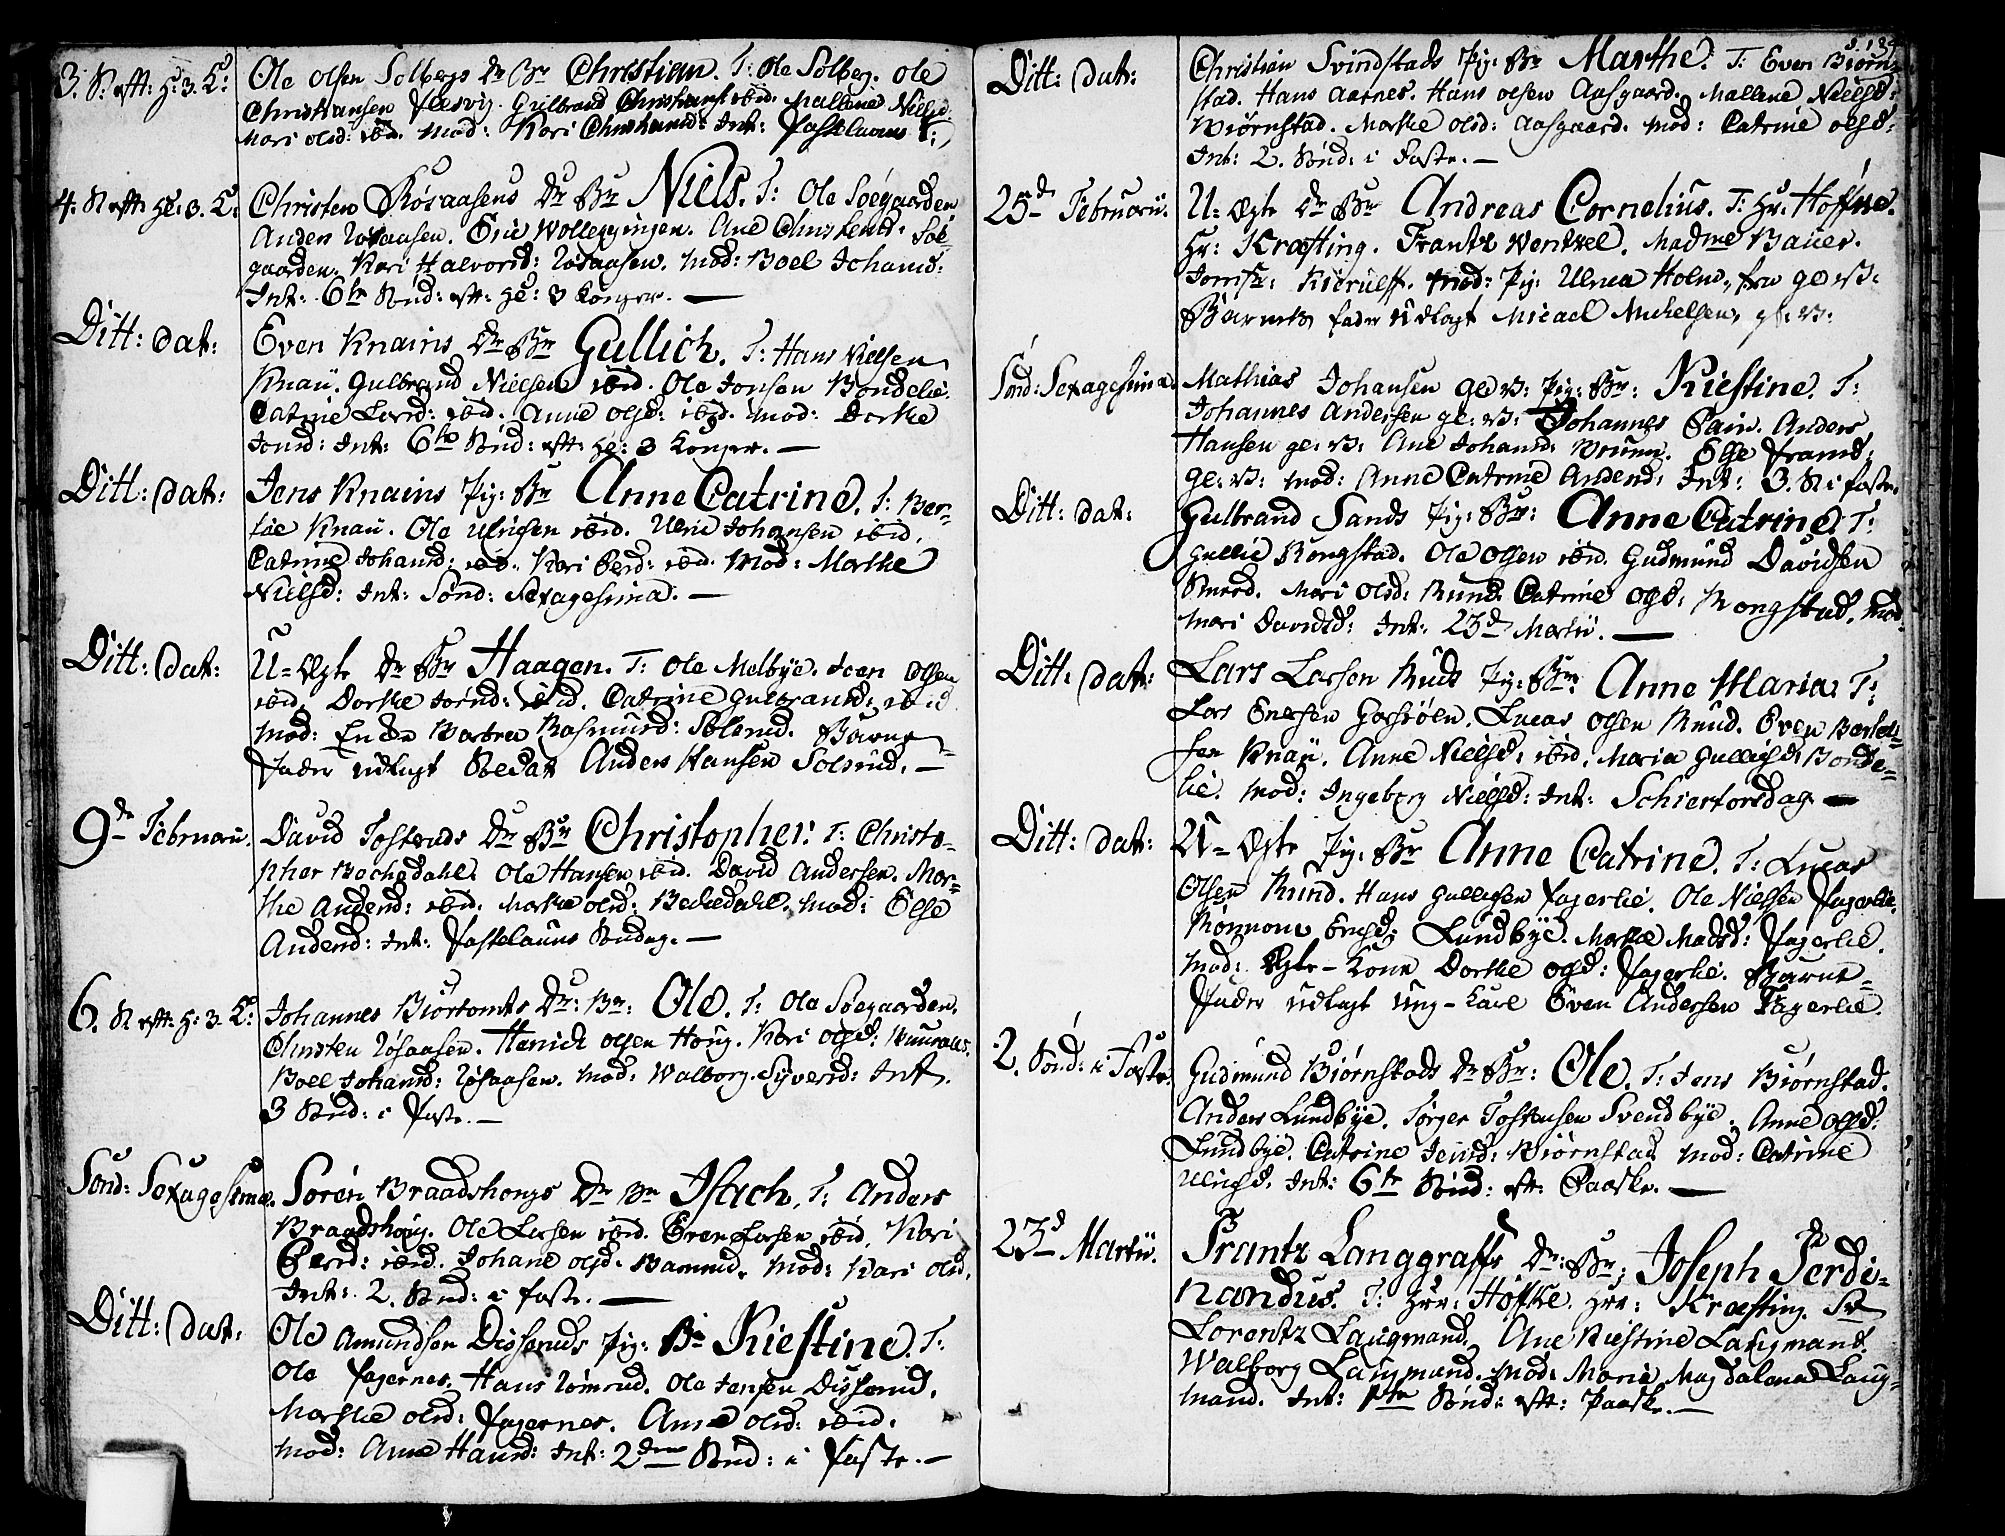 3. S. eft: H: 3. K: Ole Olsen Solbergs Dr. Br. Christian. T: Ole Solberg. Ole
Christiansen Flesvig. Gulbrand Christians: ibid. Mallene Nielsd:
Mari Olsd: ibid. Mod: Kari Christiansd: Int: Fastelauns S:
4. S. eft: H: 3. K: Christen Røsaasens Dr. Br. Niels. T: Ole Soegaarden
Anders Røsaasen. Eric Wolleggingen. Ane Christensd: Soe-
gaarden. Kari Halvorsd: Røsaasen. Mod: Boel Johansd:
Int: 6te Sønd: eft: He: 3 Konger. —
Ditt: Dat: Even Knais Dr. Br. Gullich. T: Hans Nielsen
Knai. Gulbrand Nielsen ibid. Ole Jonsen Bondelie.
Catrine Larsd: ibid. Anne Olsd: ibid. Mod: Dorthe
Jonsd: Int: 6te Sønd: eft: He: 3 Konger. —
Ditt: Dat: Jens Knains Pig: Br. Anne Catrine. T: Ber-
the Knai. Ole Ulrigsen ibid. Ulric Johansen ibid.
Catrine Johansd: ibid. Kari Persd: ibid. Mod: Marthe
Nielsd: Int: Sønd: Sexagesima. —
Ditt: Dat: U-Ægte Dr. Br. Haagen. T: Ole Melbye. Joen Olsen
ibid. Dorthe Jørnsd: ibid. Catrine Gulbransd: ibid
Mod: Enke Barbra Rasmusd: Solsrud. Barne-
Fader udlagt Soldat Anders Hansen Solsrud. —
9de Februarii. David Tostruds Dr. Br. Christopher. T: Christo-
pher Bechedahl. Ole Hansen ibid. David Andersen. Mar-
the Andersd: ibid. Marthe Olsd: Bechedahl. Mod: Else
Andersd: Int: Fastelauns Søndag. —
6. S. eft: H: 3. K: Johannes Biørtomts Dr: Br: Ole. T: Ole Soegaarden.
Christen Røsaasen. Henrich Olsen Houg. Kari Olsd:
Boel Johansd: Røsaasen. Mod: Walborg Syversd: Int.
3 Sønd: i Faste. —
Sønd: Sexagesima. Søren Braadshougs Dr. Br. Isach. T: Anders
Braadshoug. Ole Larsen ibid. Even Larsen ibid. Kari
Persd: ibid. Johane Olsd: Mod: Kari Olsd.
Int: 2. Sønd: i Faste. —
Ditt: Dat: Ole Amundsen Diseruds Pig: Br. Kiestine. T:
Ole Fagernes. Hans Rømsrud. Ole Jensen Diserud.
Marthe Olsd: Fagernes. Anne Olsd: ibid:
Mod: Anne Hansd: Int: 2den Sønd: i Faste. —
Ditt: Dat: Christian Svindstads Pig: Br. Marthe. T: Even Biørn-
stad. Hans Aarnes. Hans Olsen Aasgaard. Mallene Nielsd:
Biørnstad. Marthe Olsd: Aasgaard. Mod: Catrine Olsd:
Int: 2. Sønd: i Faste. —
25de Februarii. U-Ægte Dr. Br. Andreas Cornelius. T: Hr. Høffke.
Hr: Kræfting. Frantz Wentzel. Madme Bauer.
Jomfr: Kierulff. Mod: Pig: Ulrica Holm, fra ge: V:
Barnets Fader udlagt Micael Michelsen, ge: V:
Sønd: Sexagesima. Mathias Johansen ge: V: Pig: Br: Kiestine. T:
Johannes Andersen ge: V: Johannes Pain. Anders
Hansen ge: V: Ane Johansd: Bruun. Else Fransd:
ge: V: Mod: Anne Catrine Andersd: Int: 3. S. i Faste.
Ditt: Dat: Gulbrand Sands Pig: Br: Anne Catrine. T:
Gullic Kongstad. Ole Olsen ibid. Gudmund Davidsen
Mari Olsd: Rund. Catrine Olsd: Kongstad. Mod:
Mari Davidsd: Int: 23de Martii. —
Ditt: Dat: Lars Larsen Ruds Pig: Br: Anne Maria. T:
Lars Enersen Gaasrøen. Lucas Olsen Rund. Even Berthel-
sen Knai. Anne Nielsd: ibid. Maria Gullichsd: Bonde-
lie. Mod: Ingeborg Nielsd: Int: Schiertorsdag. —
Ditt: Dat: U-Ægte Pig: Br. Anne Catrine. T: Lucas
Olsen Rund. Hans Gullichsen Fagerlie. Ole Nielsen Fagerlie.
Rønnom Engd: Lundbye. Marthe Madsd: Fagerlie.
Mod: Ægte-Kone Dorthe Olsd: Fagerlie. Barne-
Fader udlagt Ung-Karl Even Andersen Fagerlie.
2. Sønd: i Faste. Gudmund Biørnstads Dr. Br: Ole. T: Jens Biørnstad.
Anders Lundbye. Jørger Tostensen Svendbye. Anne Olsd:
Lundbye. Catrine Jensd: Biørnstad. Mod: Catrine
Ulrigsd. Int: 6te Sønd: eft: Paaske. —
23de Martii. Frantz Langgraffs Dr: Br: Joseph Ferdi-
nandus. T: Hrr: Høffke. Hrr: Kræfting. Sr
Lorentz Laugmand. Ane Kiestine Laugmand.
Walborg Laugmand. Mod: Maria Magdalena Laug-
mand. Int: 1ste Sønd: eft: Paaske. —